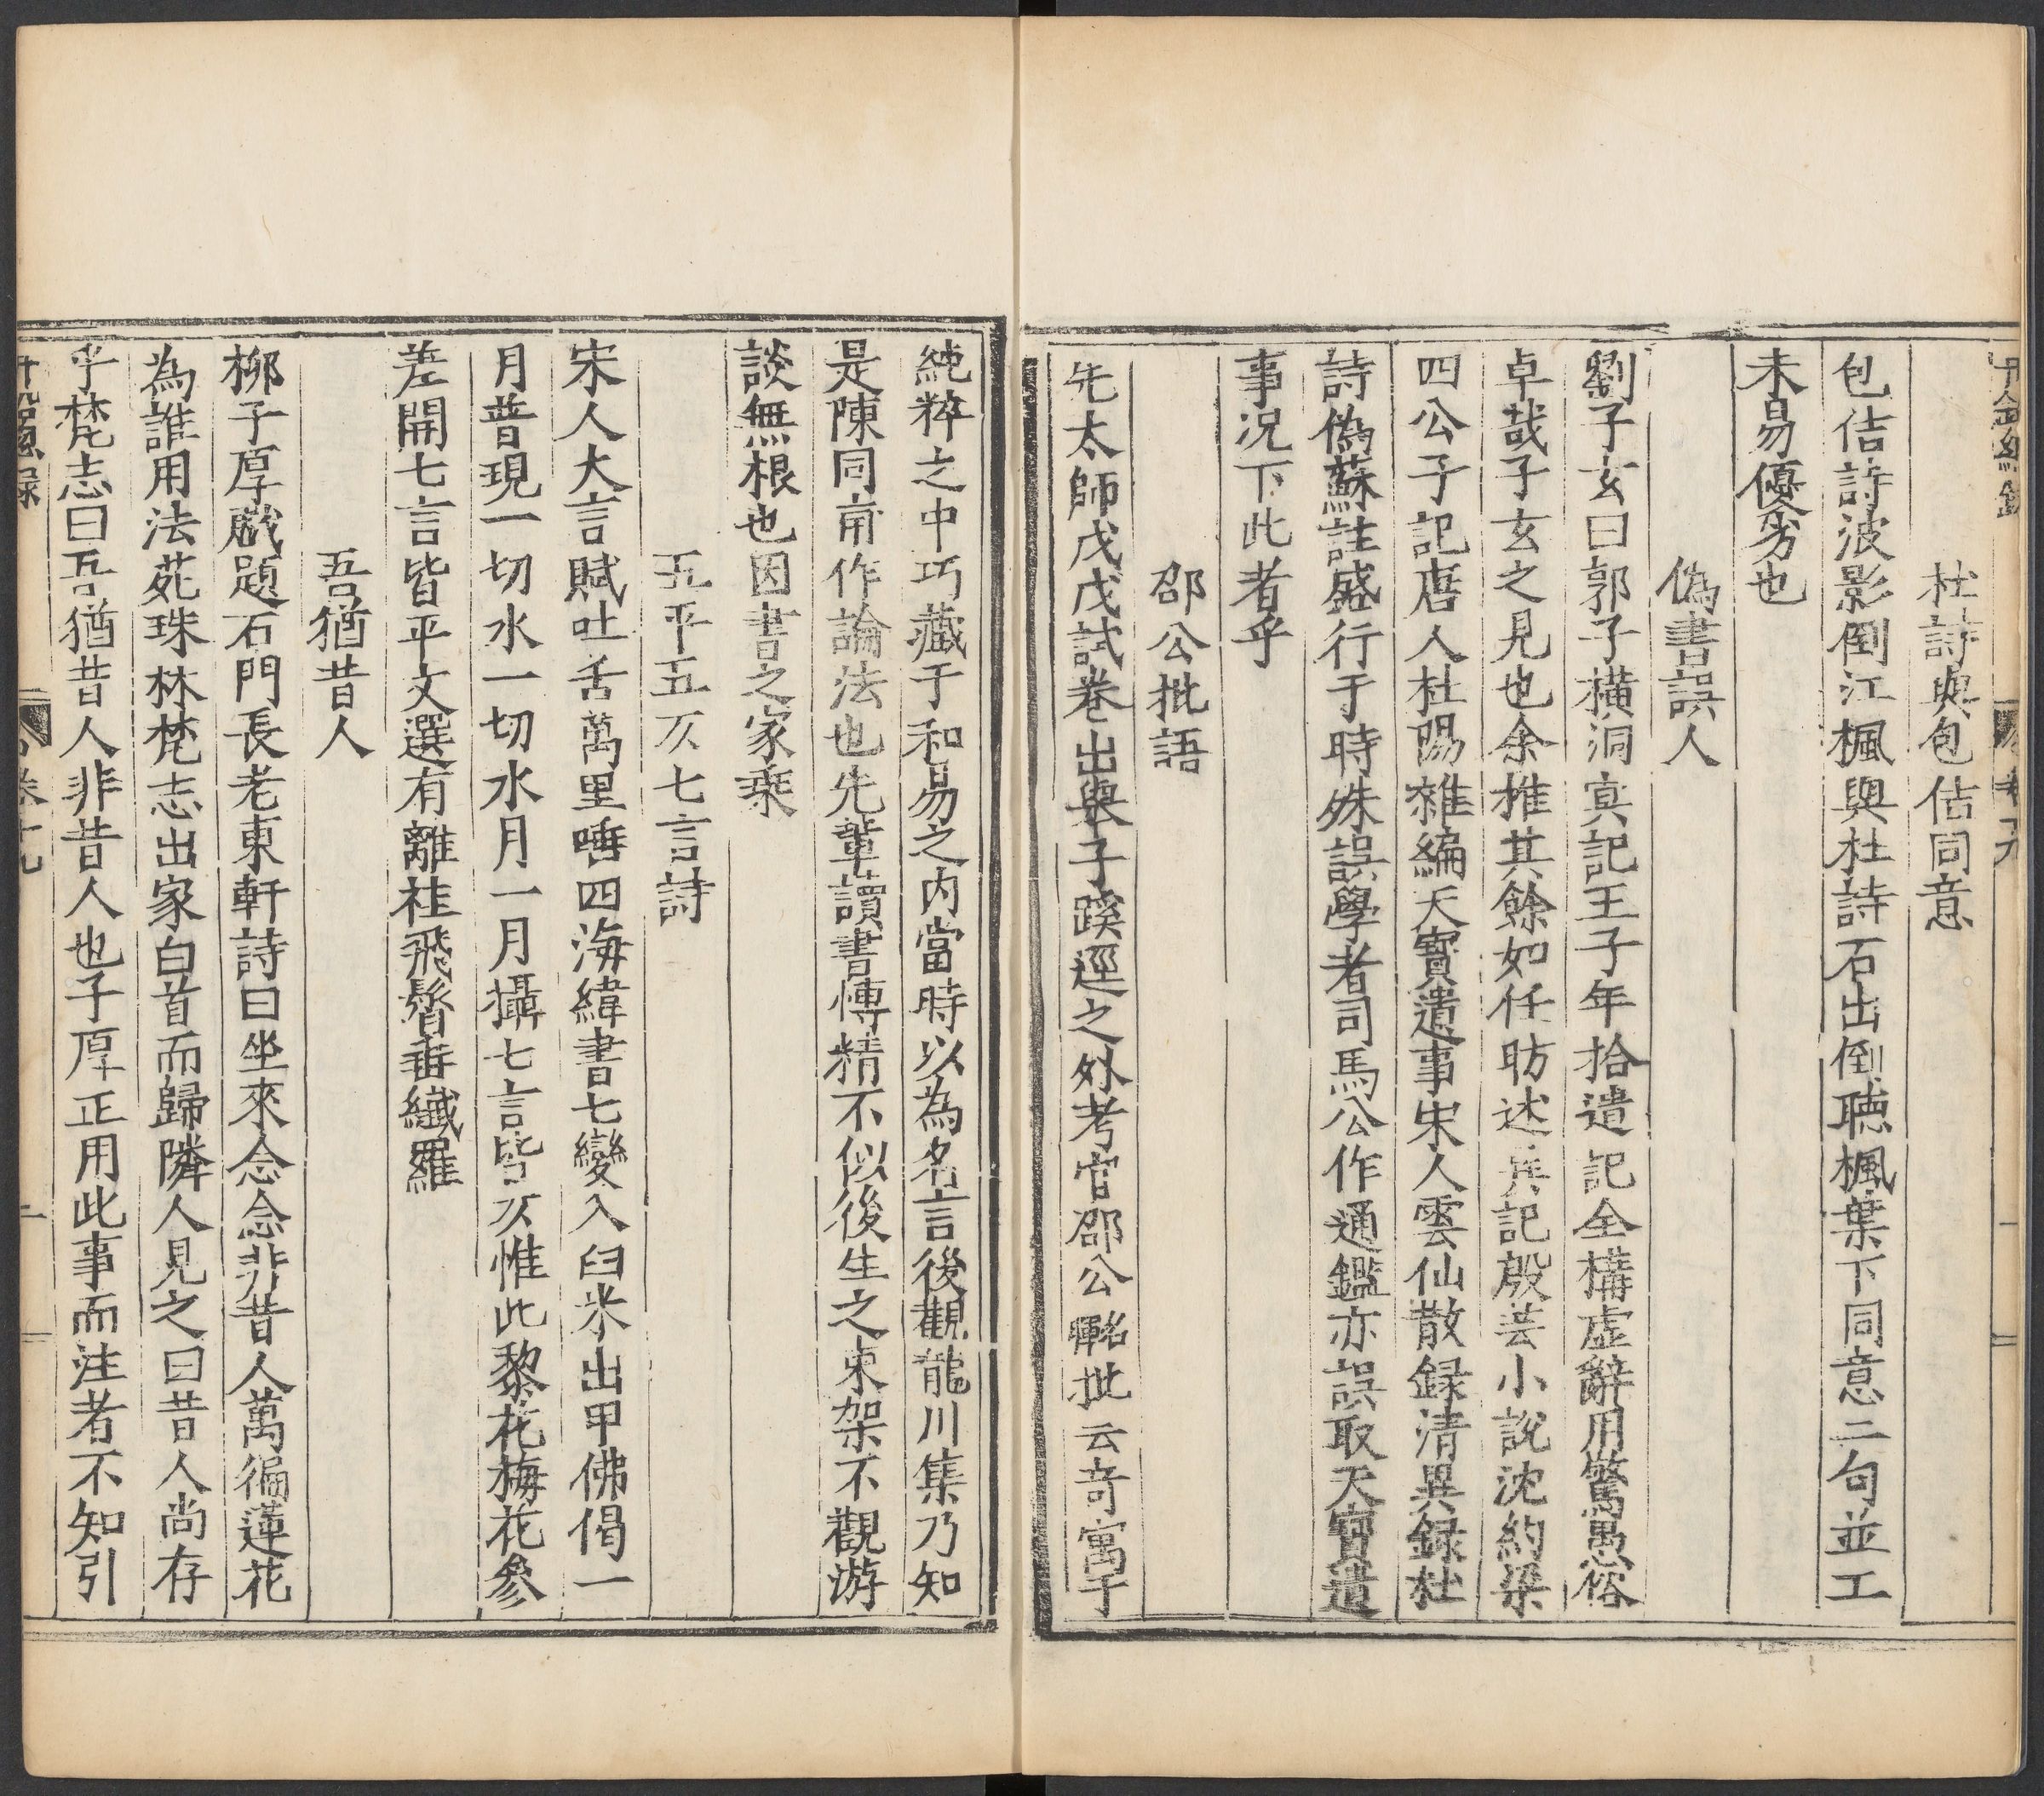 丹鉛總錄 卷十九 一
杜詩與包佶同意
包佶詩波影倒江楓與杜詩石出倒聽楓葉下同意二句並工
未易優劣也
偽書誤人
劉子玄曰郭子橫洞冥記王子年拾遺記全構虛辭用驚愚俗
卓哉子玄之見也余推其餘如任昉述異記殷芸小說沈約梁
四公子記唐人杜陽雜編天寶遺事宋人雲仙散録清異録杜
詩偽蘇註盛行于時殊誤學者司馬公作通鑑亦誤取天寶遺
事況下此者乎
邵公批語
先太師戊戌試卷出與子蹊逕之外考官邵公暉批云奇寓于
純粹之中巧藏于和易之內當時以為名言後觀龍川集乃知
是陳同甫作論法也先輩讀書博精不似後生之束架不觀游
談無根也因書之家乗
五平五仄七言詩
宋人大言賦吐舌萬里唾四海緯書七變入臼米出甲佛偈一
月普現一切水一切水月一月攝七言皆仄惟此黎花梅花參
差開七言皆平文選有離袿飛髾垂纖羅
吾猶昔人
柳子厚戲題石門長老東軒詩曰坐來念念非昔人萬徧蓮花
為誰用法苑珠林梵志出家白首而歸隣人見之曰昔人尚存
乎梵志曰吾猶昔人非昔人也子厚正用此事而注者不知引
卷十九 二